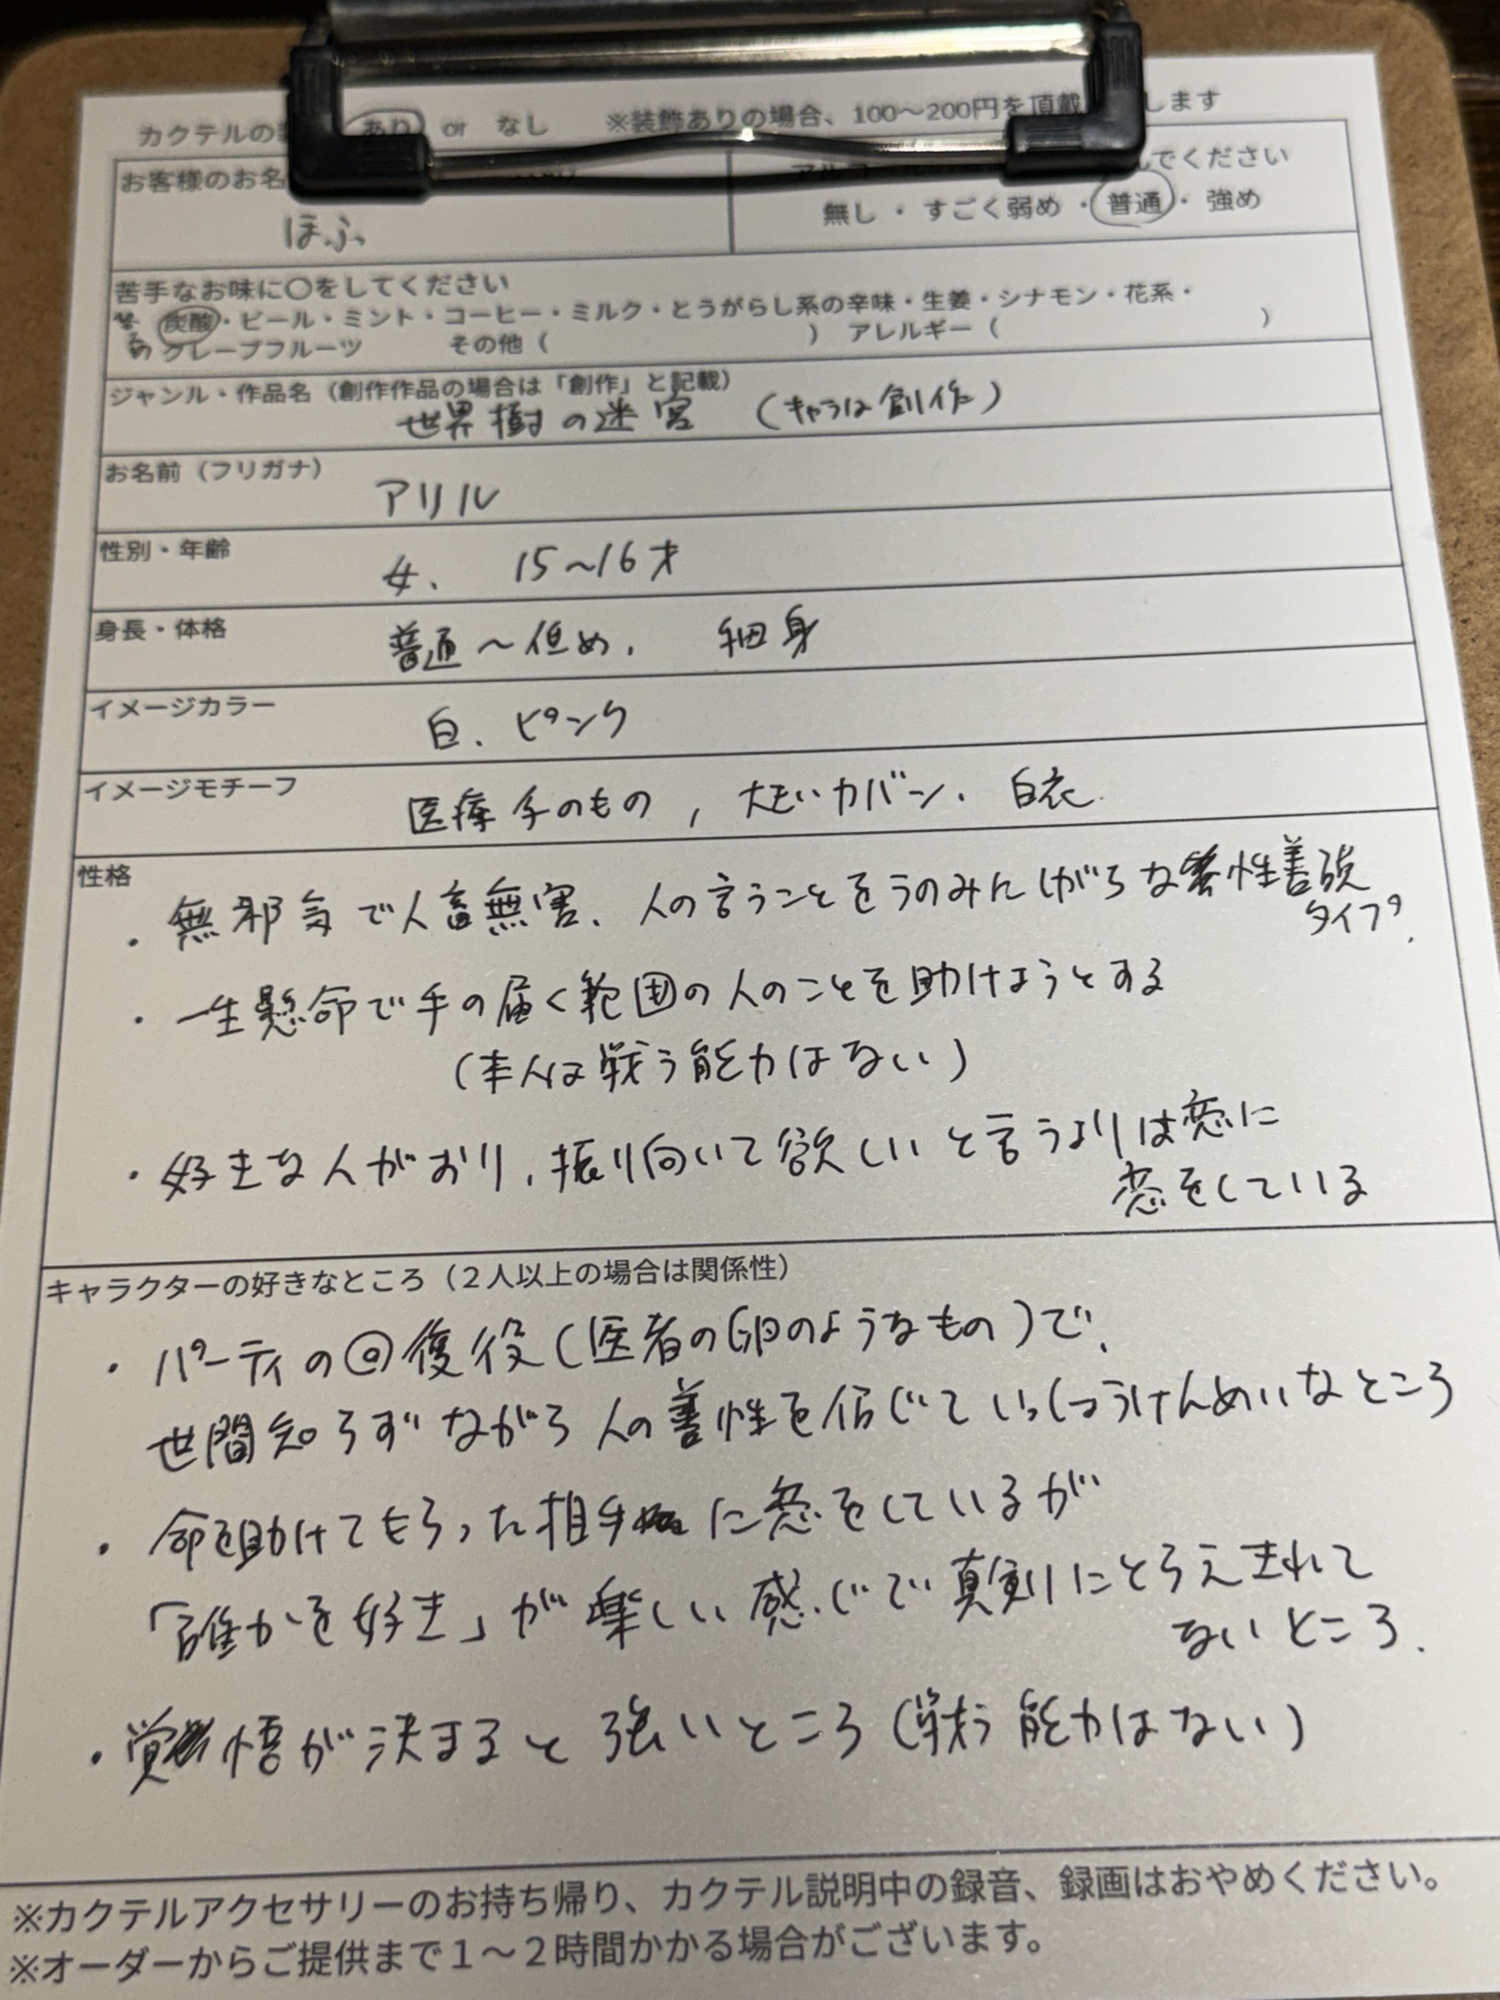 カクテルの あり or なし ※装飾ありの場合、100～200円を頂戴 します
お客様のお名
ほふ
でください
無し ・ すごく弱め ・ 普通 ・ 強め
苦手なお味に〇をしてください
炭酸・ビール・ミント・コーヒー・ミルク・とうがらし系の辛味・生姜・シナモン・花系・
グレープフルーツ その他（ ） アレルギー（ ）
ジャンル・作品名（創作作品の場合は「創作」と記載）
世界樹の迷宮 （キャラは創作）
お名前（フリガナ）
アリル
性別・年齢
女、 15～16才
身長・体格
普通～低め、 細身
イメージカラー
白、ピンク
イメージモチーフ
医療系のもの、大きいカバン、白衣
性格
・無邪気で人畜無害、人の言うことをうのみにしがちな性善説
タイプ。
・一生懸命で手の届く範囲の人のことを助けようとする
（本人は戦う能力はない）
・好きな人がおり、振り向いて欲しいと言うよりは恋に
恋をしている
キャラクターの好きなところ（２人以上の場合は関係性）
・パーティの回復役（医者の卵のようなもの）で、
世間知らずながら人の善性を信じていっしょうけんめいなところ
・命を助けてもらった相手に恋をしているが
「誰かを好き」が楽しい感じで真剣にとらえきれて
ないところ。
・覚悟が決まると強いところ（戦う能力はない）
※カクテルアクセサリーのお持ち帰り、カクテル説明中の録音、録画はおやめください。
※オーダーからご提供まで１～２時間かかる場合がございます。